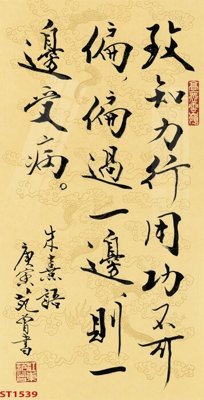 致知力行用功不可
偏,偏過一邊,則一
邊受病。
朱熹語
庚寅書
ST1539